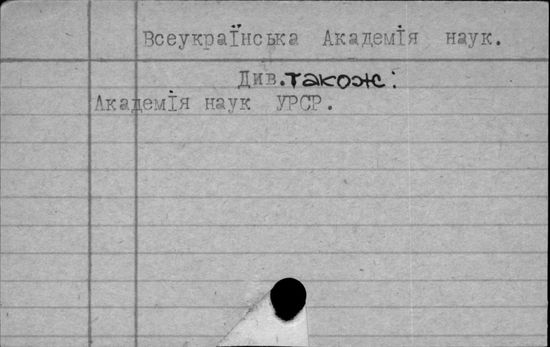 Всеукраїнська Академія наук.
Див. також:
Академія наук УРСР.